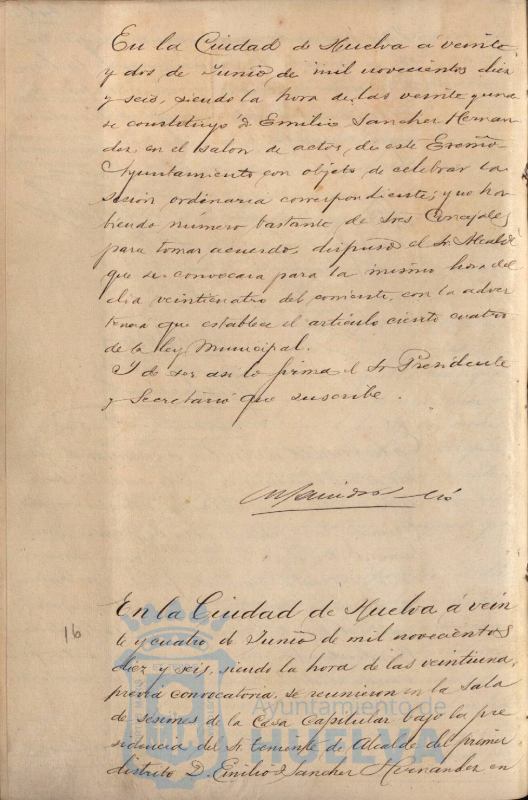 En la Ciudad de Huelva á veinte
y dos de Junio de mil novecientos diez
y seis, siendo la hora de las veinte y una
se constituyó D. Emilio Sanchez Hernan
dez, en el salon de actos de este Excmo
Ayuntamiento con objeto de celebrar la
sesion ordinaria correspondiente; y no ha
biendo número bastante de Sres Concejales
para tomar acuerdo, dispuso el Sr. Alcalde
que se convocara para la misma hora del
dia veinticuatro del corriente, con la adver
tencia que establece el artículo ciento cuatro
de la ley Municipal.
Y de ser asi lo firma el Sr Presidente
y Secretario que suscribe.
16
En la Ciudad de Huelva á vein
te y cuatro de Junio de mil novecientos
diez y seis, siendo la hora de las veintiuna,
previa convocatoria, se reunieron en la Sala
de sesiones de la Casa Capitular bajo la pre
sidencia del Sr. teniente de Alcalde del primer
distrito D. Emilio Sanchez Hernandez en
Ayuntamiento de
HUELVA